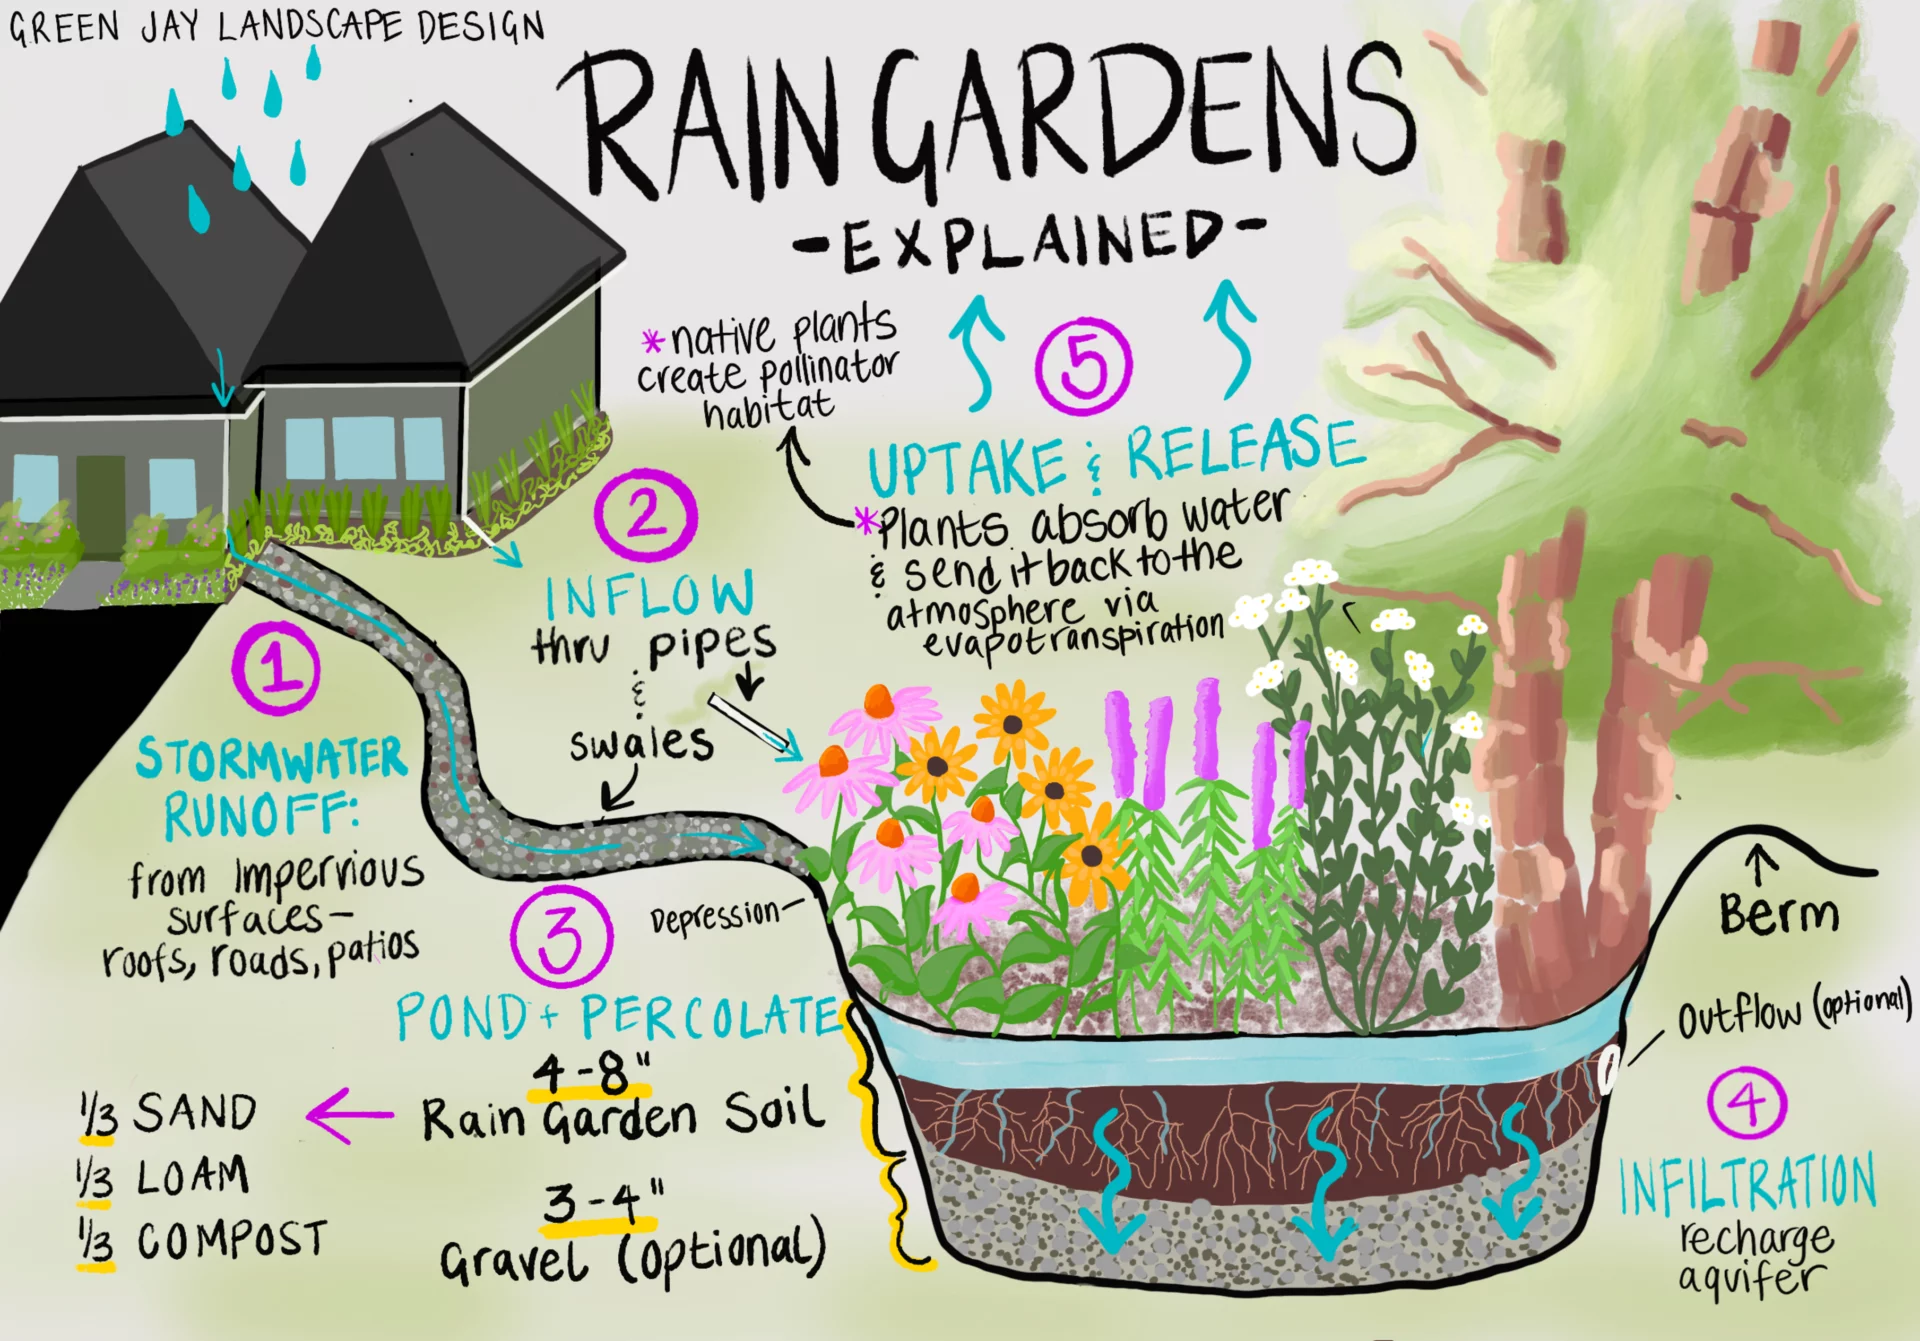 GREEN JAY LANDSCAPE DESIGN
RAIN GARDENS
-EXPLAINED-
*native plants
create pollinator
habitat
5
UPTAKE & RELEASE
*Plants absorb water
& send it back to the
atmosphere via
evapotranspiration
2
INFLOW
thru pipes
&
swales
1
STORMWATER
RUNOFF:
from Impervious
surfaces-
roofs, roads, patios
3
Depression-
POND + PERCOLATE
4-8"
Rain Garden Soil
3-4"
Gravel (optional)
1/3 SAND
1/3 LOAM
1/3 COMPOST
Berm
Outflow (optional)
4
INFILTRATION
recharge
aquifer